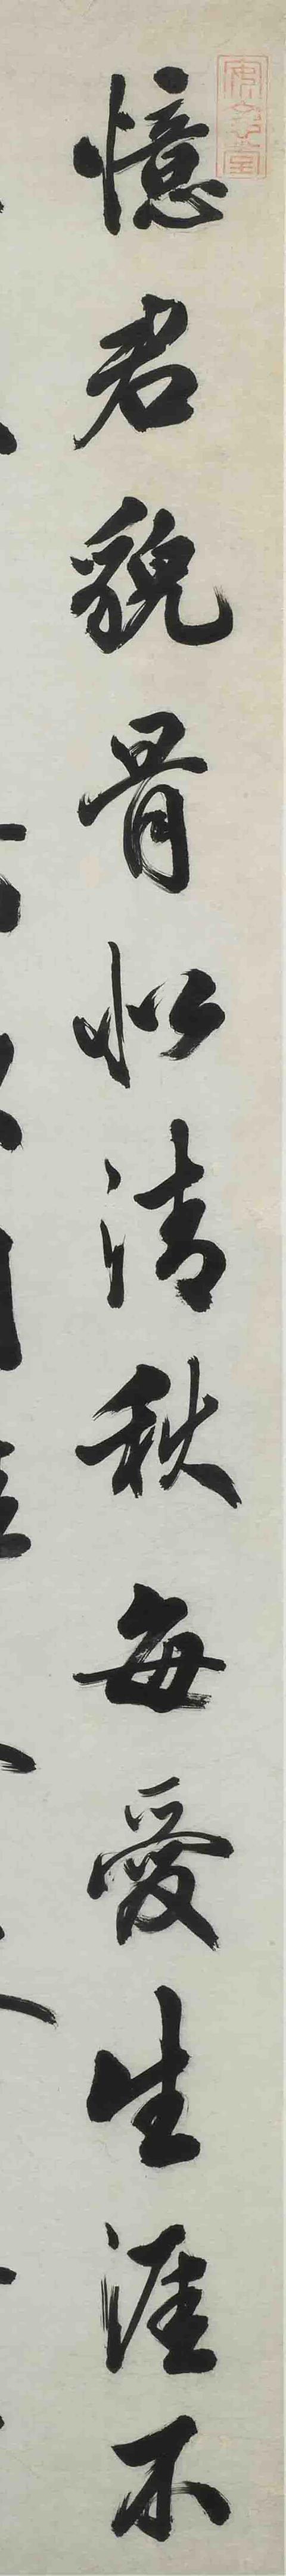 憶君貌骨似清秋每愛生涯不